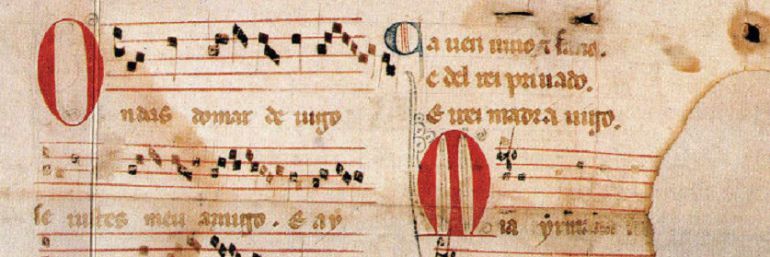 Ondas domar de uigo
se uistes meu amigo . E ay
Ca uen uiuo ⁊ sano.
e del rei priuado.
E irei madra uigo.
Mia yrmana